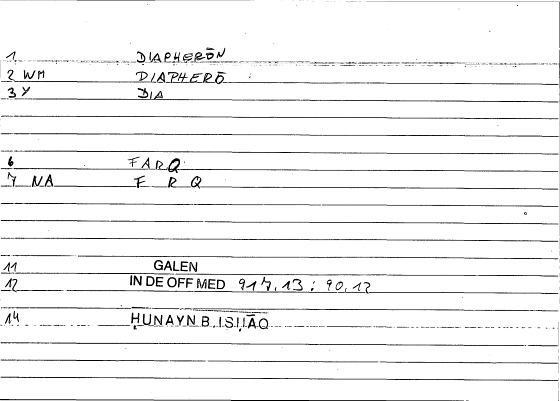 1 DIAPHERŌN
2 WM DIAPHERŌ
3 Y DIA
6 FARQ
7 NA F R Q
11 GALEN
12 IN DE OFF MED 917,13 : 90,12
14 ḤUNAYN B. ISḤĀQ